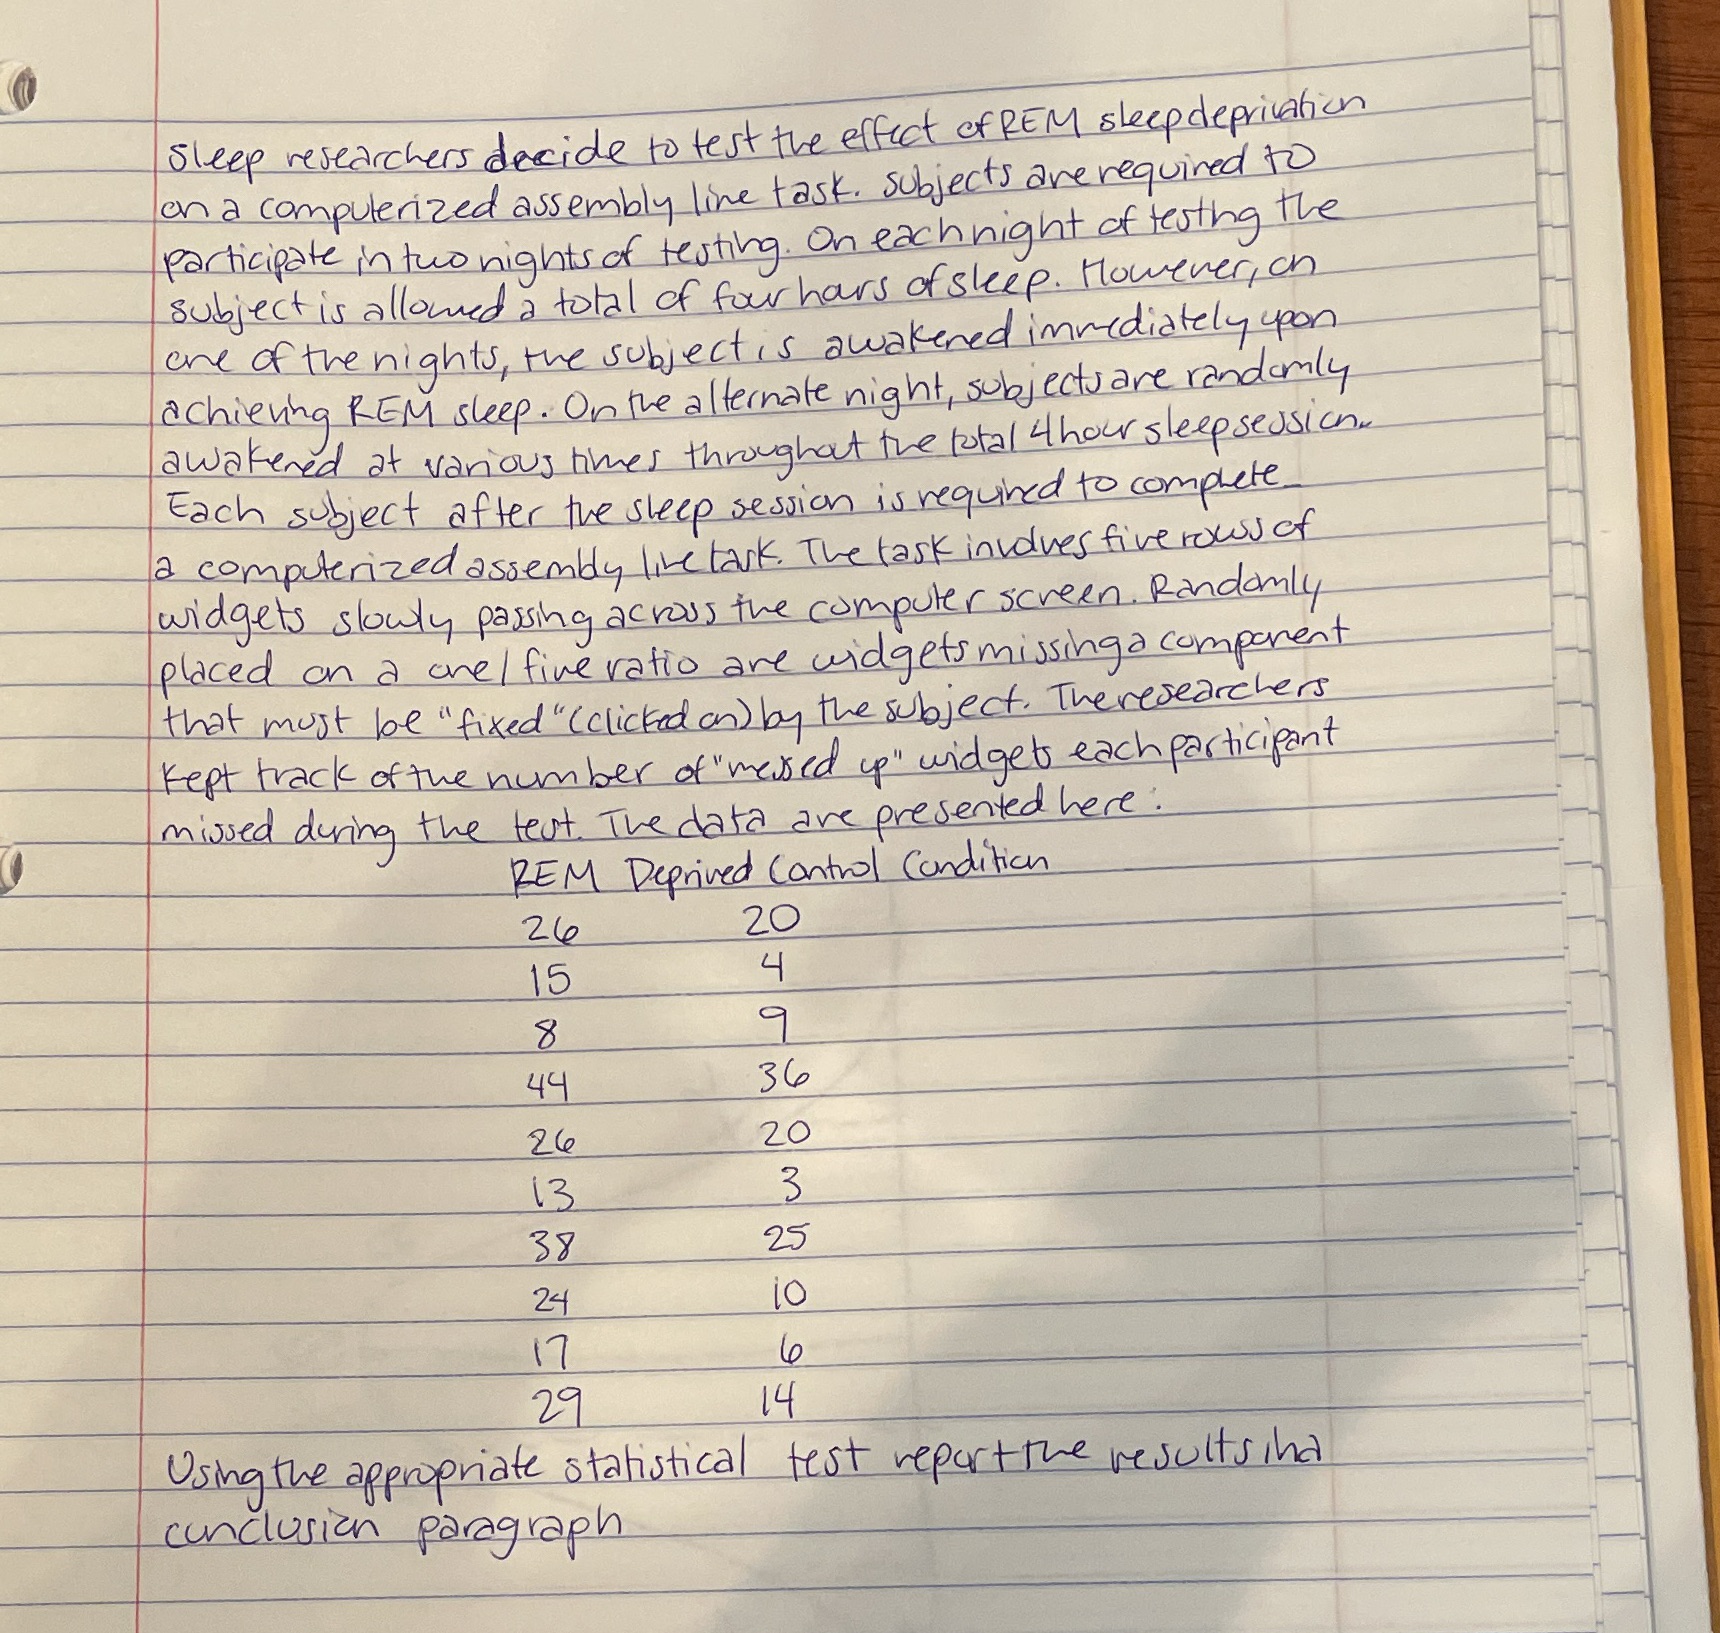 Sleep researchers decide to test the effect of REM sleep deprivation
on a computerized assembly line task. Subjects are required to
participate in two nights of testing. On each night of testing the
subject is allowed a total of four hours of sleep. However, on
one of the nights, the subject is awakened immediately upon
achieving REM sleep. On the alternate night, subjects are randomly
awakened at various times throughout the total 4 hour sleep session.
Each subject after the sleep session is required to complete
a computerized assembly line task. The task involves five rows of
widgets slowly passing across the computer screen. Randomly
placed on a one/five ratio are widgets missing a component
that must be "fixed" (clicked on) by the subject. The researchers
kept track of the number of "messed up" widgets each participant
missed during the test. The data are presented here:
REM Deprived Control Condition
26 20
15 4
8 9
44 36
26 20
13 3
38 25
24 10
17 6
29 14
Using the appropriate statistical test report the results in a
conclusion paragraph